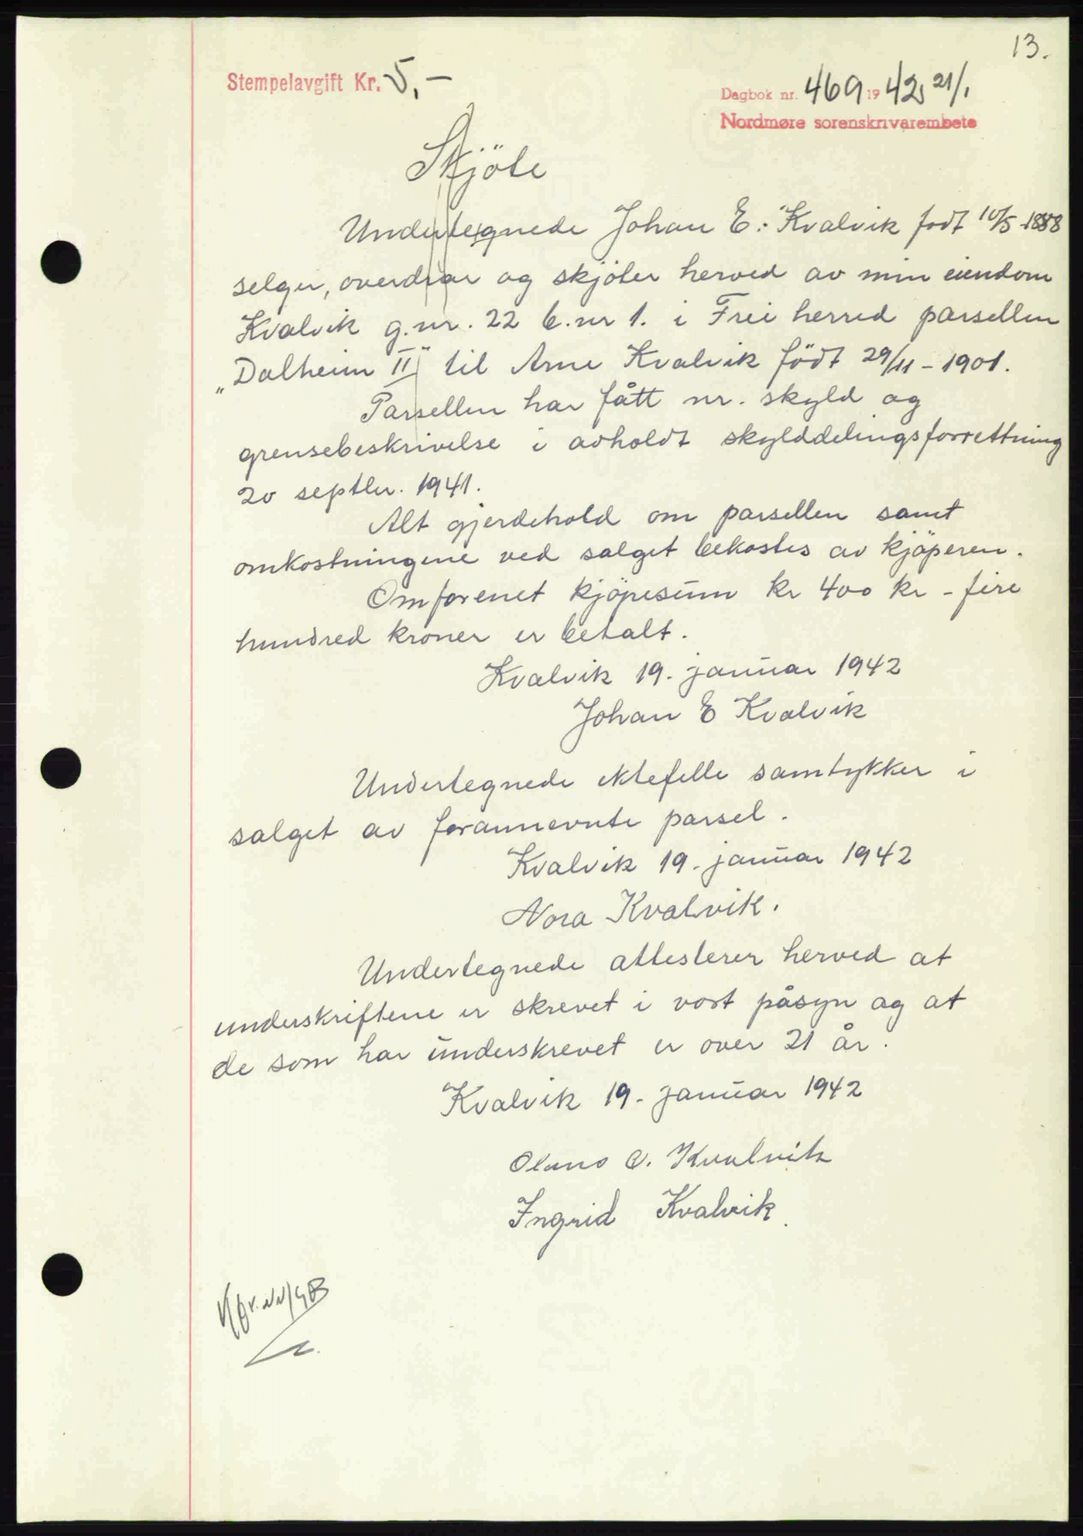 13.
Stempelavgift Kr. 5,-
Dagbok nr. 469 1942 21/1
Nordmøre sorenskrivarembete
Skjöte
Undertegnede Johan E. Kvalvik født 10/5-1888
selger, overdrar og skjöter herved av min eiendom
Kvalvik g.nr. 22 b.nr 1. i Frei herred parsellen
„Dalheim II" til Arne Kvalvik födt 29/11-1901.
Parsellen har fått nr. skyld og
grensebeskrivelse i avholdt skylddelingsforrettning
20 septbr. 1941.
Alt gjerdehold om parsellen samt
omkostningene ved salget bekostes av kjöperen.
Omforenet kjöpesum kr 400 kr - fire
hundred kroner er betalt.
Kvalvik 19. januar 1942
Johan E Kvalvik
Undertegnede ektefelle samtykker i
salget av forannevnte parsel.
Kvalvik 19. januar 1942
Nora Kvalvik.
Undertegnede attesterer herved at
underskriftene er skrevet i vort påsyn og at
de som har underskrevet er over 21 år.
Kvalvik 19. januar 1942
Kvalvik
Ingrid Kvalvik